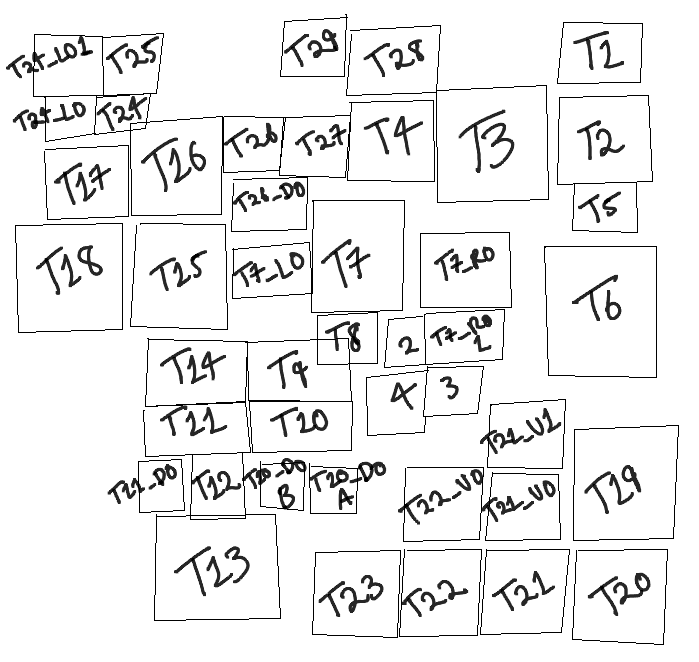 T29
T28
T1
T24_L01
T25
T24_L0
T24
T26
T27
T4
T3
T2
T17
T16
T26_D0
T5
T18
T15
T7_L0
T7
T7_R0
T6
T8
2
T7_R0
1
T14
T9
4
3
T11
T10
T21_U1
T11_D0
T12
T10_D0
B
T10_D0
A
T22_U0
T21_U0
T19
T13
T23
T22
T21
T20